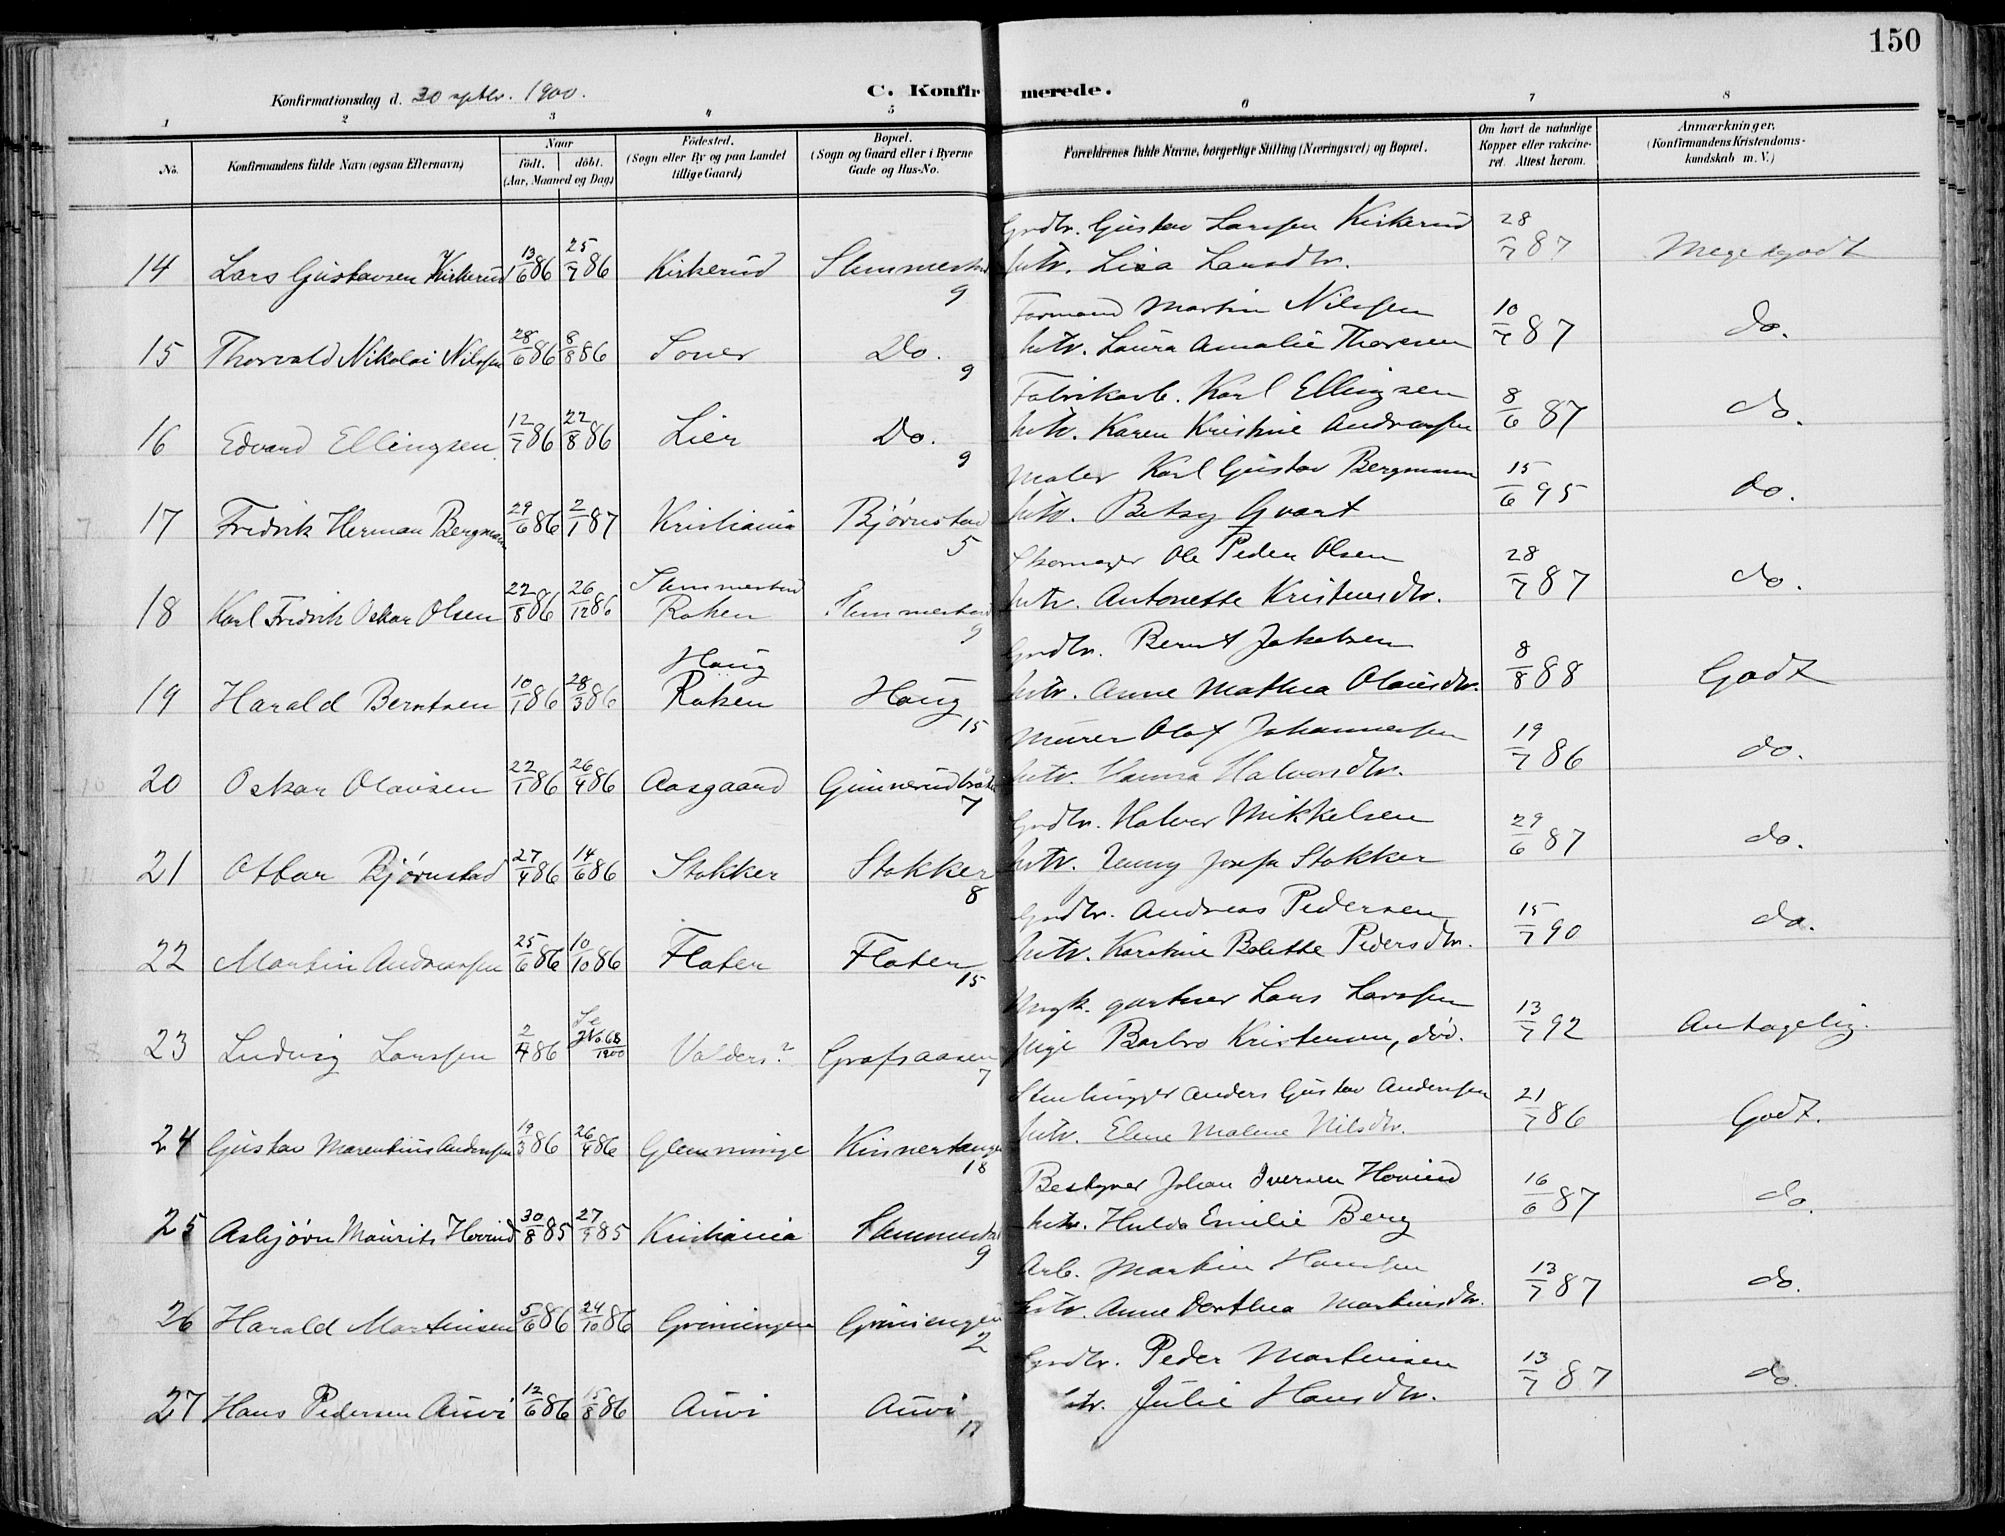 150
Konfirmationsdag d. 30 septbr. 1900.
C. Konfirmerede.
1 2 3 4 5 6 7 8
No.
Konfirmandens fulde Navn (ogsaa Efternavn)
Naar
födt. döbt.
(Aar, Maaned og Dag)
Födested.
(Sogn eller By og paa Landet
tillige Gaard)
Bopæl.
(Sogn og Gaard eller i Byerne
Gade og Hus-No.
Forældrenes fulde Navne, borgerlige Stilling (Næringsvei) og Bopæl.
Om havt de naturlige
Kopper eller vakcine-
ret. Attest herom.
Anmærkninger.
(Konfirmandens Kristendoms-
kundskab m. V.)
14 Lars Gustavsen Kirkerud 13/6 86 25/7 86 Kirkerud Slemmestad 9
Grdbr. Gustav Larssen Kirkerud
hstr. Lisa Larsdtr. 28/7 87 Meget godt
15 Thorvald Nikolai Nilssen 28/6 86 8/8 86 Soner Do. 9
Formand Martin Nilssen
hstr. Laura Amalie Thoresen 10/7 87 do.
16 Edvard Ellingsen 12/7 86 22/8 86 Lier Do. 9
Fabrikarb. Karl Ellingsen
hstr. Karen Kristine Andreassen 8/6 87 do.
17 Fredrik Herman Bergmann 29/6 86 2/1 87 Kristiania Bjørnstad 5
Maler Karl Gustav Bergmann
hstr. Betsy Qvart 15/6 95 do.
18 Karl Fredrik Oskar Olsen 22/8 86 26/12 86 Slemmestad Røken Slemmestad 9
Skomager Ole Peder Olsen
hstr. Antonette Kristensdtr. 28/7 87 do.
19 Harald Berntsen 10/1 86 28/3 86 Haug Røken Haug 15
Grdbr. Bernt Jakobsen
hstr. Anne Mathea Olausdtr. 8/8 88 Godt
20 Oskar Olausen 22/1 86 26/4 86 Aasgaard Gunnerudbråten 7
Murer Olaf Johannessen
hstr. Hanna Halvorsdtr. 19/7 86 do.
21 Ottar Bjørnstad 27/4 86 14/6 86 Stokker Stokker 8
Grdbr. Halvor Mikkelsen
hstr. Jenny Josefa Stokker 29/6 87 do.
22 Martin Andreassen 25/6 86 10/10 86 Flaten Flaten 15
Grdbr. Andreas Pedersen
hstr. Karstine Bolette Pedersdtr. 15/7 90 do.
23 Ludvig Larssen 2/4 86 Se J No 68 1900 Valders? Grafsaasen 7
Ungk. gartner Lars Larssen
Pige Barbro Kristensen, død. 13/7 92 Antagelig.
24 Gustav Marentius Anderssen 19/3 86 26/4 86 Glemminge Kinnertangen 18
Stenhugger Anders Gustav Anderssen
hstr. Elene Malene Nilsdtr. 21/7 86 Godt.
25 Asbjørn Maurits Hovind 30/8 85 27/9 85 Kristiania Slemmestad 9
Bestyrer Johan Iversen Hovind
hstr. Hulda Emilie Berg 16/6 87 do.
26 Harald Martinsen 5/6 86 24/10 86 Gröningen Gröningen 2
Arb. Martin Hanssen
hstr. Anne Dorthea Martinsdtr. 13/7 87 do.
27 Hans Pedersen Auvi 12/6 86 15/8 86 Auvi Auvi 17
Grdbr. Peder Martinsen
hstr. Julie Hansdtr. 13/7 87 do.